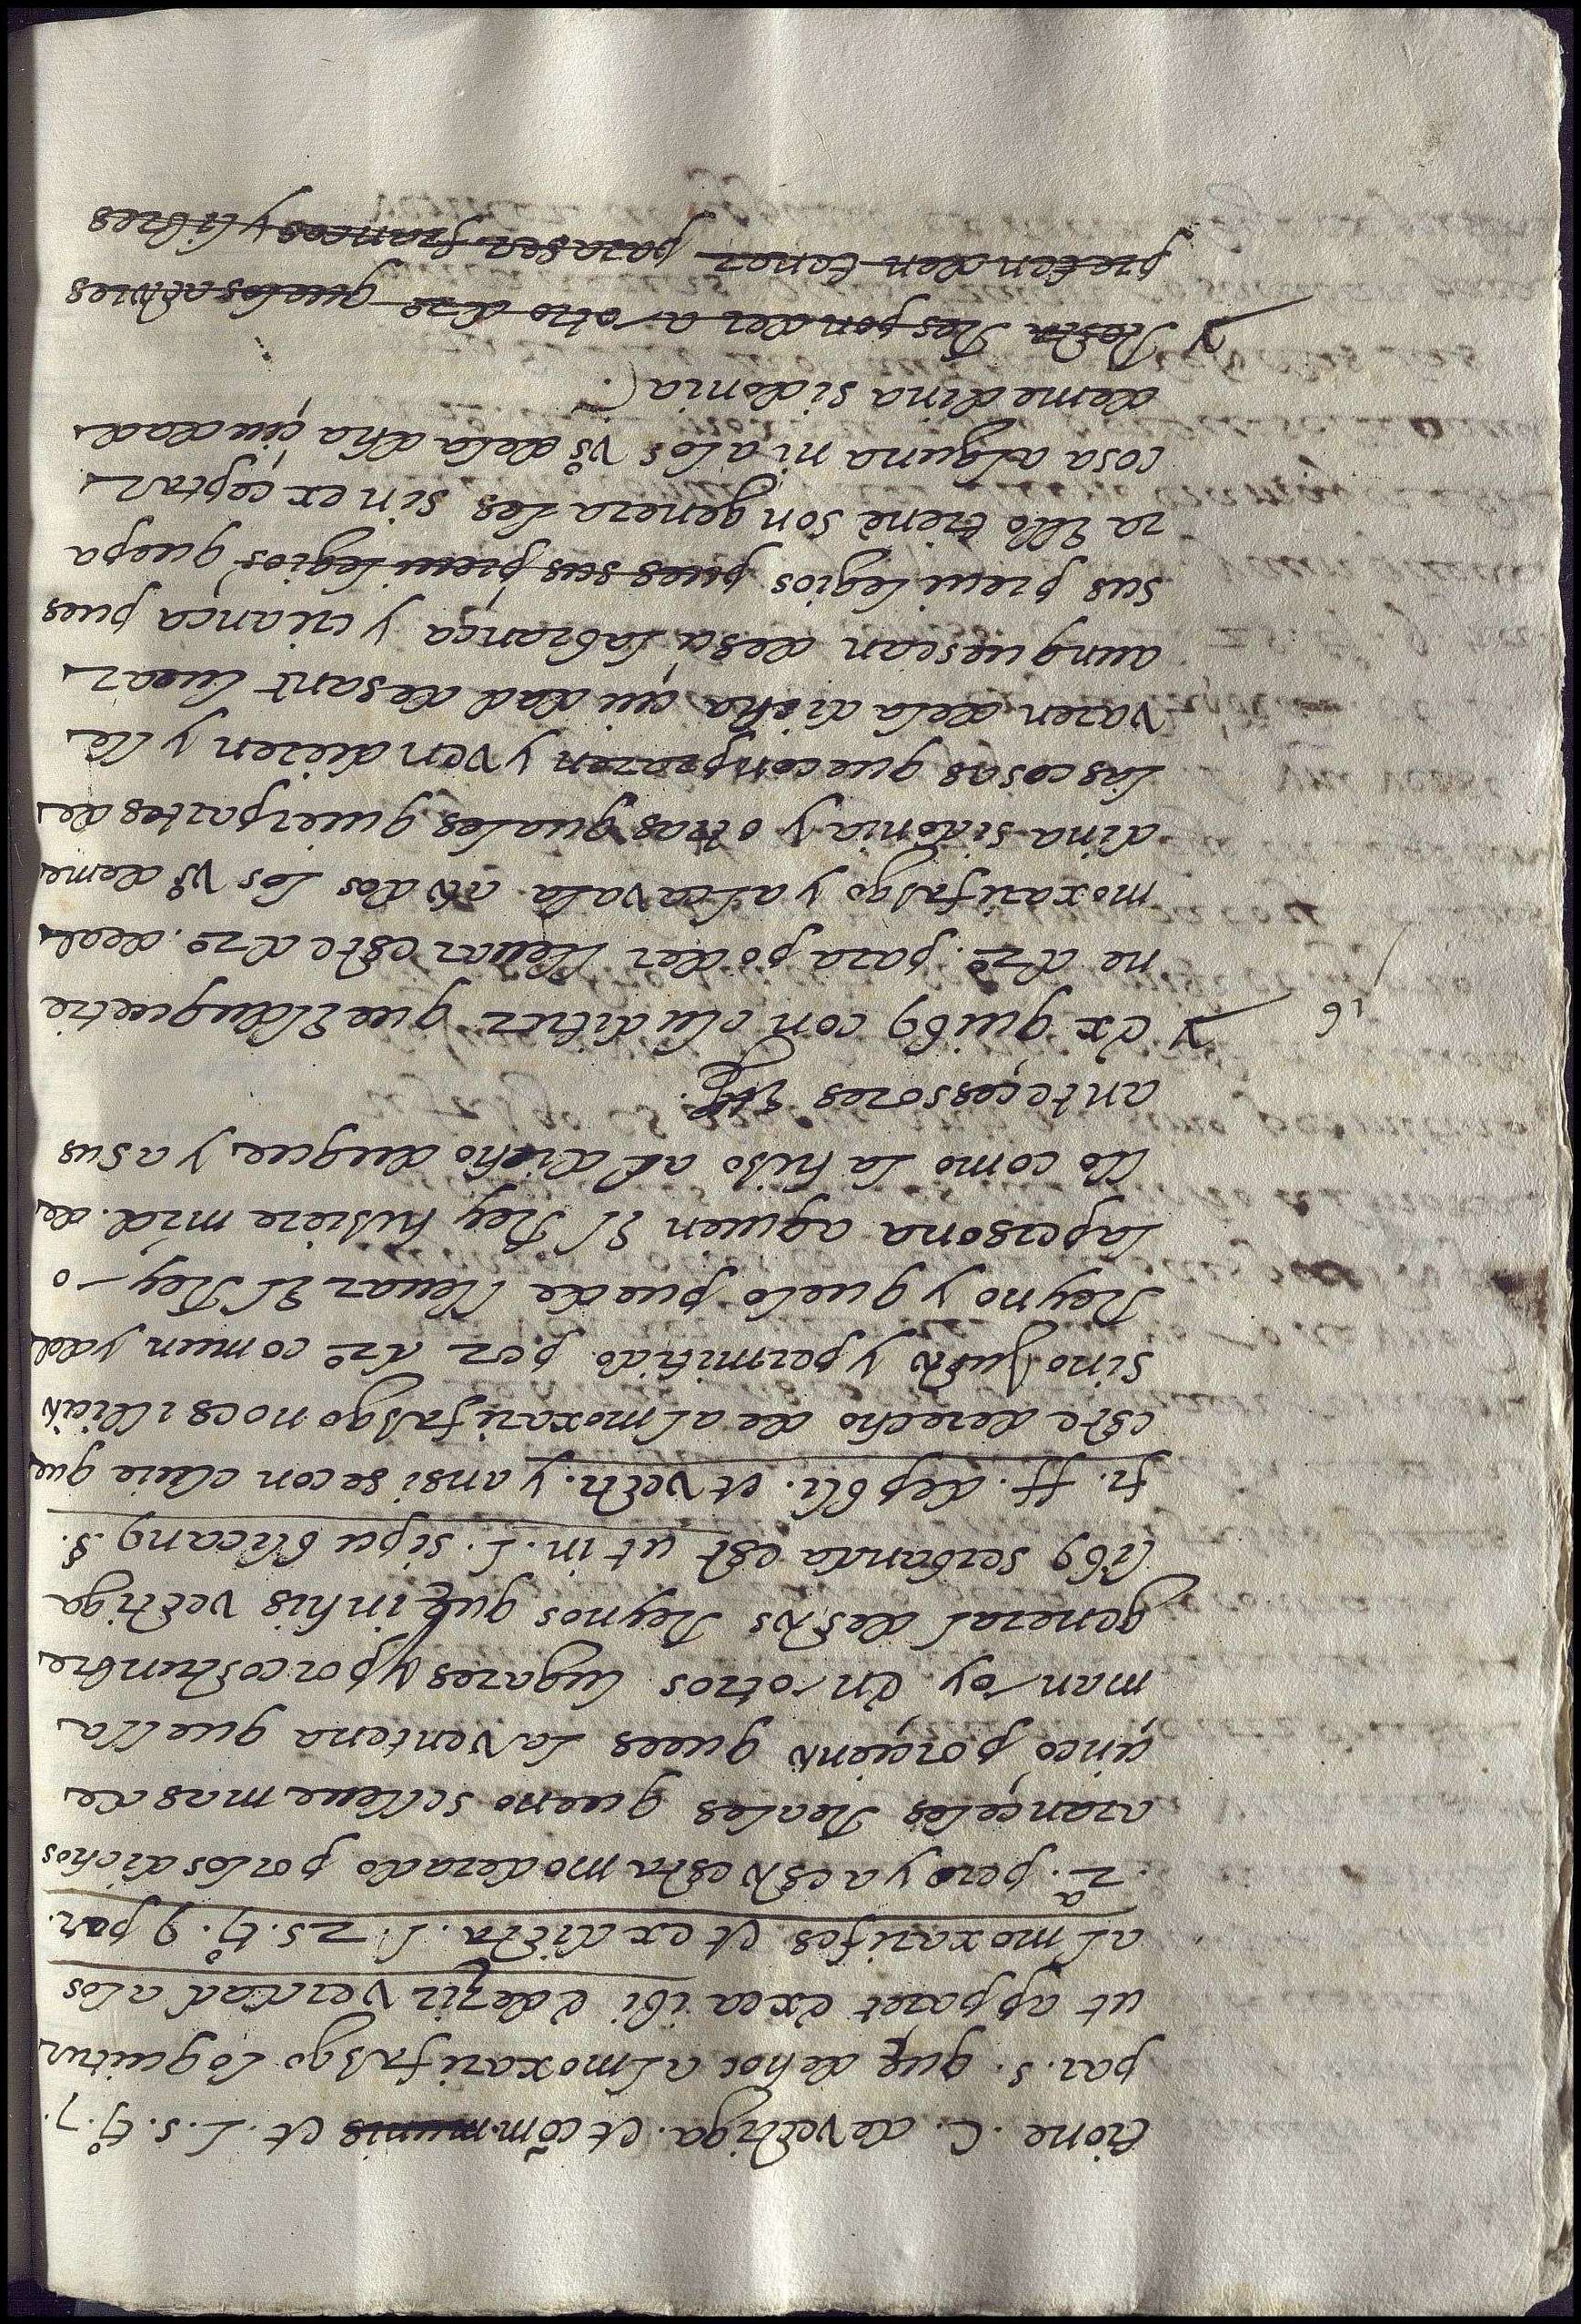 tione. C. de vectiga. et cõm munis et. l. 5. tº. 7.
par. 5. que de hoc almoxarifasgo loquitur
ut apparet ex ea ibi e dezir verdad a los
almoxarifes et ex dicta. l. 25. tº. 9 par.
2ª. pero ya esto esta moderado por los dichos
arançeles Reales que no se lleue mas de
çinco por çiento que es la ventena que lla
man oy en otros lugares y por costunbre
general destos Reynos que in his vectiga
lib9 seruanda est ut in. l. si publican9 §.
fi. ff. de publi. et vecti. y ansi se concluie que
este derecho de almoxarifasgo no es illicito
sino justo y permitido por drº comun y del
Reyno y que lo puede lleuar El Rey o
la persona a quien El Rey hisiere mrd. de
llo como la hiso al dicho duque y a sus
anteçessores
16 ex quib9 concluditur que El duque tie
ne drº. para poder lleuar este drº. de al
moxarifasgo y alcavala a todos los vºs de me
dina sidonia y otras quales quier partes de
las cosas que conpraren y vendieren y lle
varen de la dicha çiudad de sant lucar
aunque sean de su labrança y criança pues
sus preuilegios pues sus preuilegios que pa
ra Ello tiene son generales sin exceptar
cosa alguna ni a los vºs de la dha çiudad
de medina sidonia.
Resta Responder a otro drº que los actores
pretenden tener para ser francos y libres